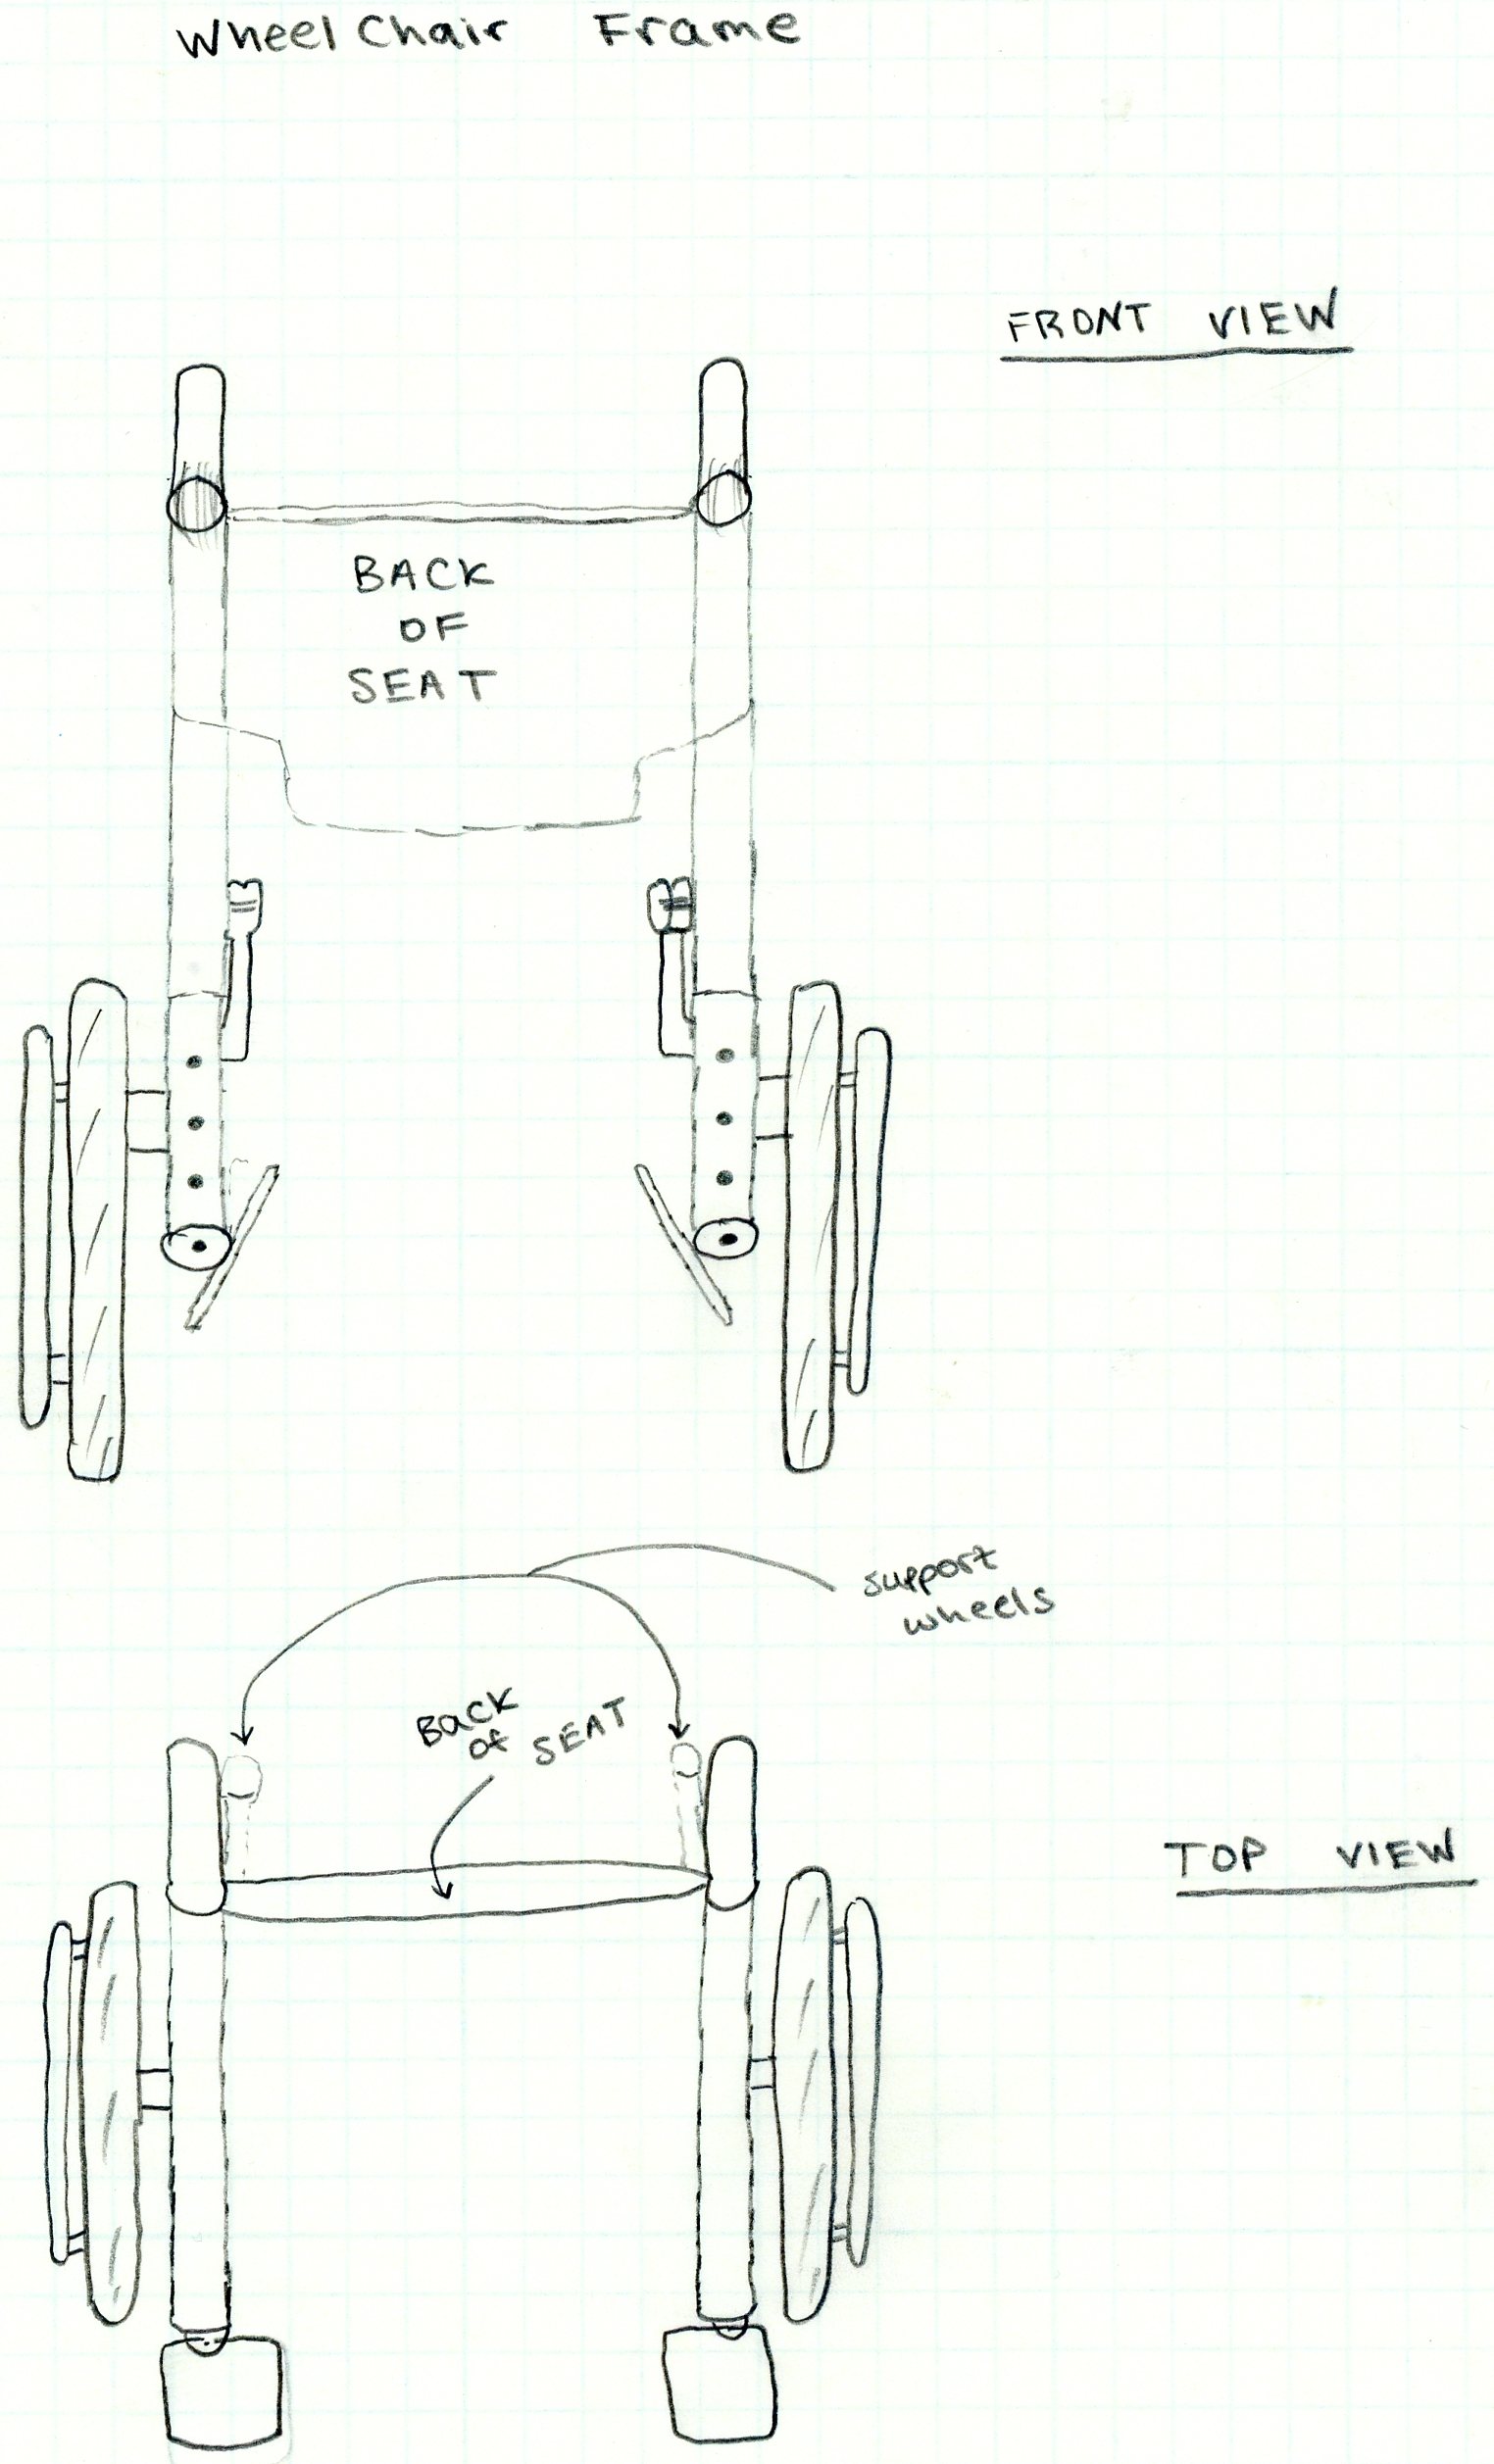 Wheel Chair Frame
FRONT VIEW
BACK
OF
SEAT
support
wheels
Back
of SEAT
TOP VIEW